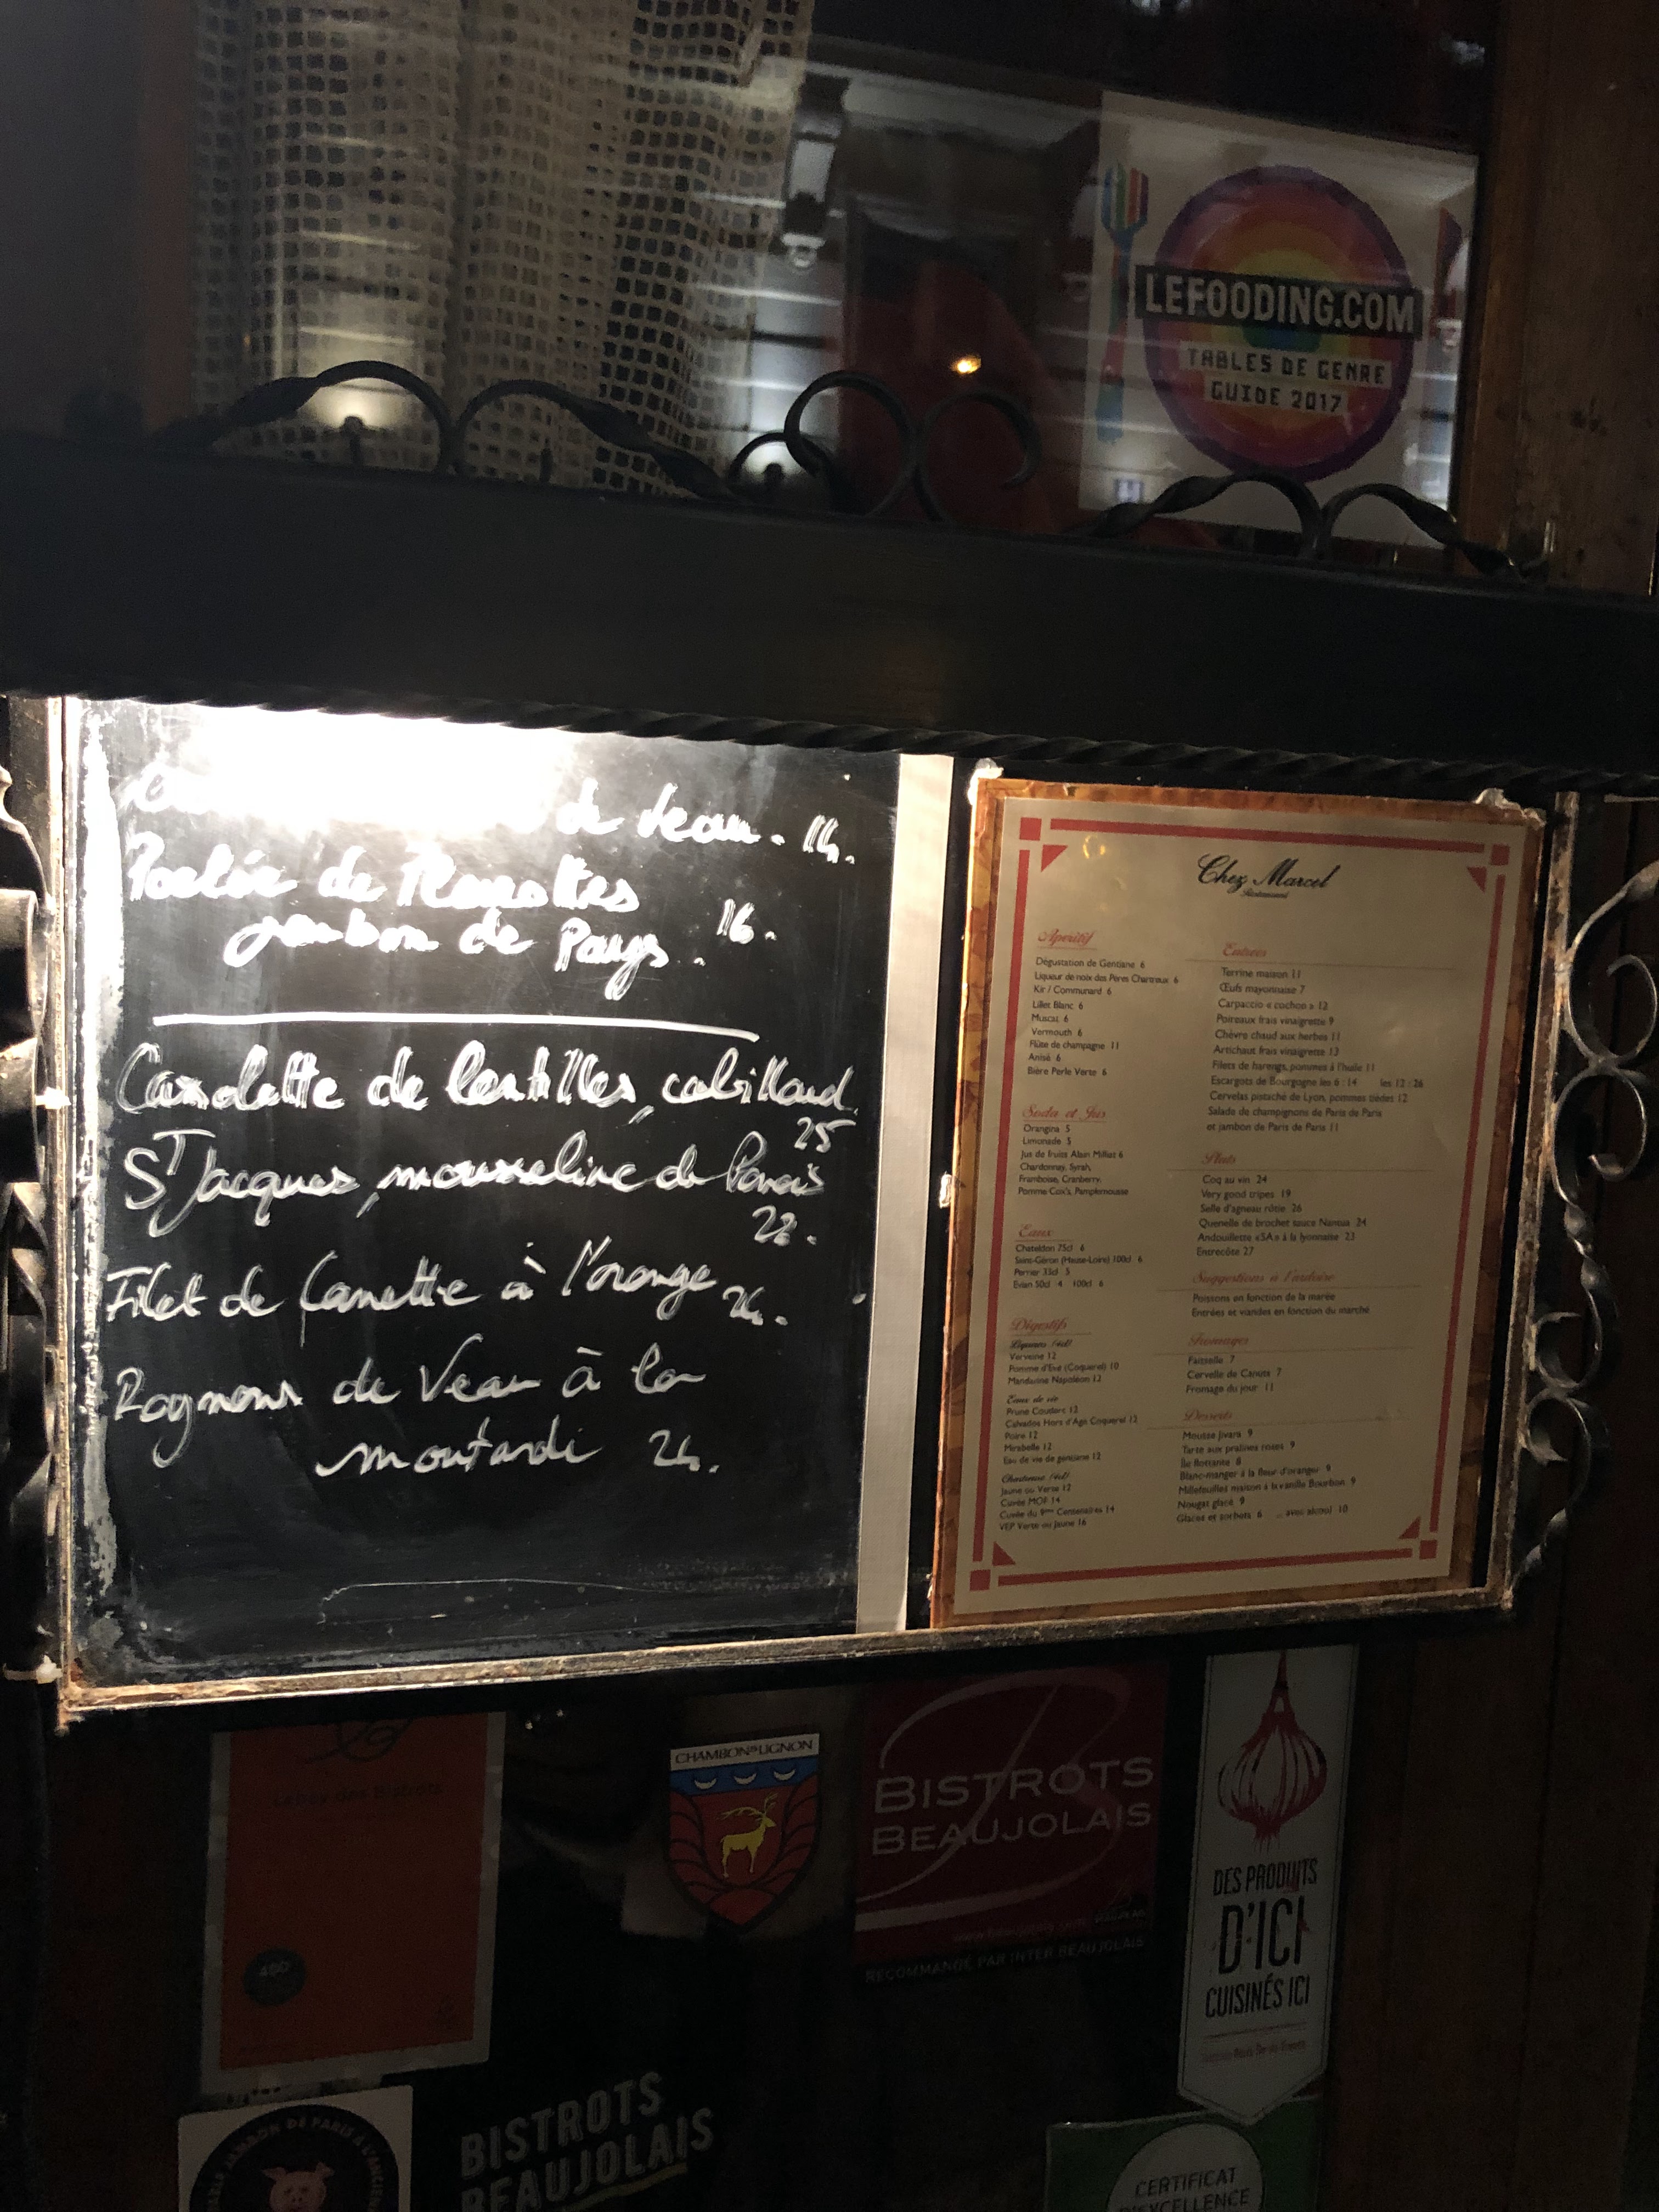 LEFOODING.COM
TABLES DE GENRE
GUIDE 2017
de Veau. 14.
Poêlée de Pleurottes
jambon de Pays. 16.
de lentilles, cabillaud.
25
St Jacques, mousseline de Panais
28.
Filet de Canette à l'orange 24.
Rognons de Veau à la
moutarde 24.
Chez Marcel
Restaurant
Apéritif
Dégustation de Gentiane 6
Liqueur de noix des Pères Chartreux 6
Kir / Communard 6
Lillet Blanc 6
Muscat 6
Vermouth 6
Flûte de champagne 11
Anisé 6
Bière Perle Verte 6
Soda et Jus
Orangina 5
Limonade 5
Jus de fruits Alain Milliat 6
Chardonnay, Syrah,
Framboise, Cranberry,
Pomme Cox's, Pamplemousse
Eaux
Chateldon 75cl 6
Saint-Géron (Haute-Loire) 100cl 6
Perrier 33cl 5
Evian 50cl 4 100cl 6
Digestifs
Liqueurs (4cl)
Verveine 12
Pomme d'Eve (Coquerel) 10
Mandarine Napoléon 12
Eaux de vie
Prune Couderc 12
Calvados Hors d'Age Coquerel 12
Poire 12
Mirabelle 12
Eau de vie de gentiane 12
Chartreuse (4cl)
Jaune ou Verte 12
Cuvée MOF 14
Cuvée du 9ème Centenaires 14
VEP Verte ou Jaune 16
Entrées
Terrine maison 11
Œufs mayonnaise 7
Carpaccio « cochon » 12
Poireaux frais vinaigrette 9
Chèvre chaud aux herbes 11
Artichaut frais vinaigrette 13
Filets de harengs, pommes à l'huile 11
Escargots de Bourgogne les 6 : 14 les 12 : 26
Cervelas pistaché de Lyon, pommes tièdes 12
Salade de champignons de Paris de Paris
et jambon de Paris de Paris 11
Plats
Coq au vin 24
Very good tripes 19
Selle d'agneau rôtie 26
Quenelle de brochet sauce Nantua 24
Andouillette «5A» à la lyonnaise 23
Entrecôte 27
Suggestions à l'ardoise
Poissons en fonction de la marée
Entrées et viandes en fonction du marché
Fromages
Faisselle 7
Cervelle de Canuts 7
Fromage du jour 11
Desserts
Mousse Jivara 9
Tarte aux pralines roses 9
Île flottante 8
Blanc-manger à la fleur d'oranger 9
Millefeuilles maison à la vanille Bourbon 9
Nougat glacé 9
Glaces et sorbets 6 ... avec alcool 10
Lebey des Bistrots
CHAMBON sur LIGNON
BISTROTS
BEAUJOLAIS
RECOMMANDÉ PAR INTER BEAUJOLAIS
DES PRODUITS
D'ICI
CUISINÉS ICI
JAMBON DE PARIS À L'ANCIENNE
BISTROTS
BEAUJOLAIS
CERTIFICAT
D'EXCELLENCE